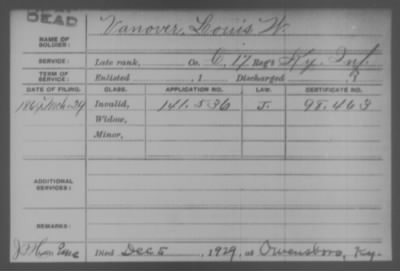 DEAD
NAME OF SOLDIER: Vanover, Louis W.
SERVICE: Late rank, Co. C, 17 Reg't Ky. Inf.
TERM OF SERVICE: Enlisted , 1 Discharged , 1
DATE OF FILING. CLASS. APPLICATION NO. LAW. CERTIFICATE NO.
Mch. 29 Invalid, 141.536 J. 98.463
Widow,
Minor,
ADDITIONAL SERVICES:
REMARKS:
Died Dec 5 , 1929, at Owensboro, Ky.